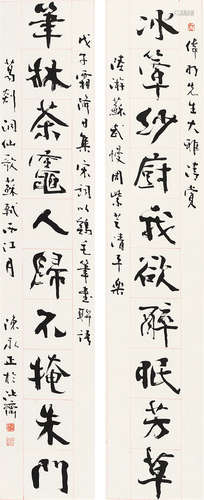 偉明先生大雅清賞
冰簟紗廚我欲醉眠芳草
陸游蘇武慢周紫芝清平樂
戊子霜清月集宋詞以鷄毛筆書聯語
筆牀茶竈人歸不掩朱門
葛剡洞仙歌蘇軾西江月
陳永正於沚齋